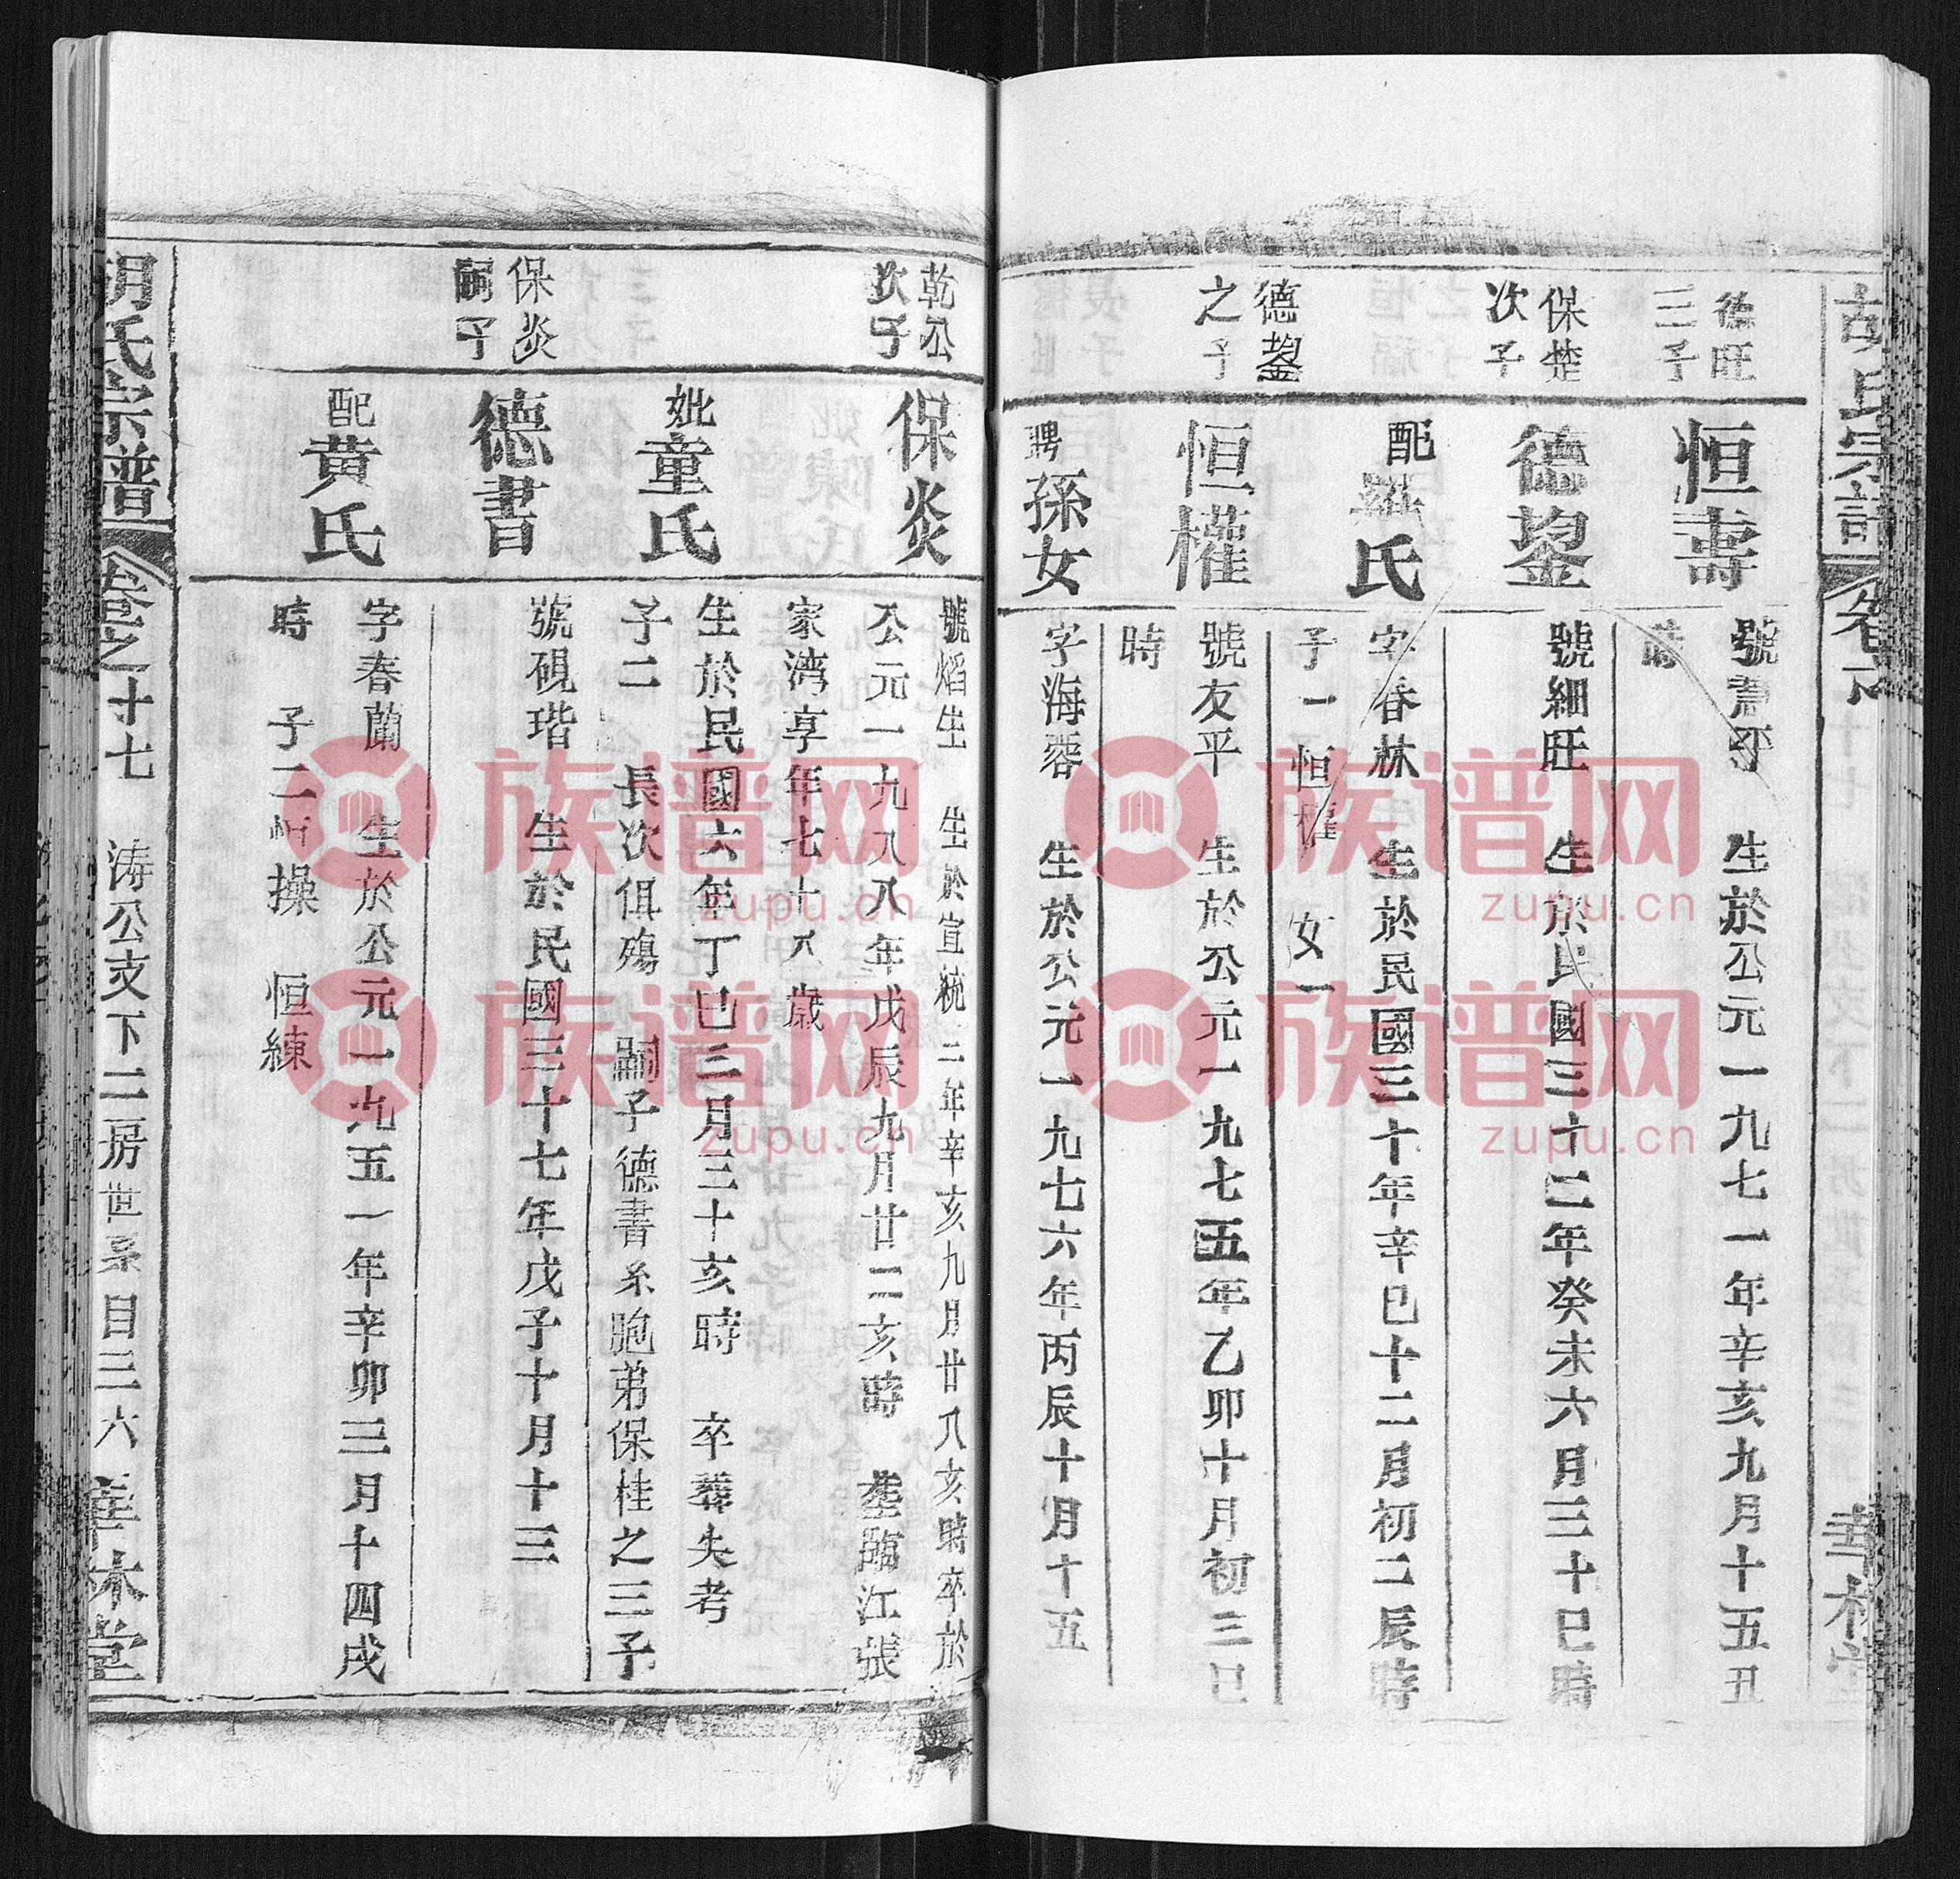 胡氏宗譜
德旺
三子
恒壽
生於公元一九七一年辛亥九月十五丑
時
保楚
次子
德鋆
號細旺 生於民國三十二年癸未六月三十巳時
配
氏
字春林 生於民國三十年辛巳十二月初二辰時
子一 恒權 女一
德鋆
之子
恒權
號友平 生於公元一九七五年乙卯十月初三巳
時
聘
孫女
字海蓉 生於公元一九七六年丙辰十月十五
乾公
次子
保炎
號熖生 生於宣統二年辛亥九月廿八亥時卒於
公元一九八八年戊辰九月廿二亥時 塟臨江張
家湾享年七十八歲
妣
童氏
生於民國六年丁巳三月三十亥時 卒塟失考
子二 長次俱殤 嗣子德書系胞弟保桂之三子
保炎
嗣子
德書
號硯瑎 生於民國三十七年戊子十月十三
配
黃氏
字春蘭 生於公元一九五一年辛卯三月十四戌
時 子二恒操 恒練
胡氏宗譜 卷之十七 涛公支下二房世系 目三六 華林堂
族谱网
zupu.cn
族谱网
zupu.cn
族谱网
zupu.cn
族谱网
zupu.cn